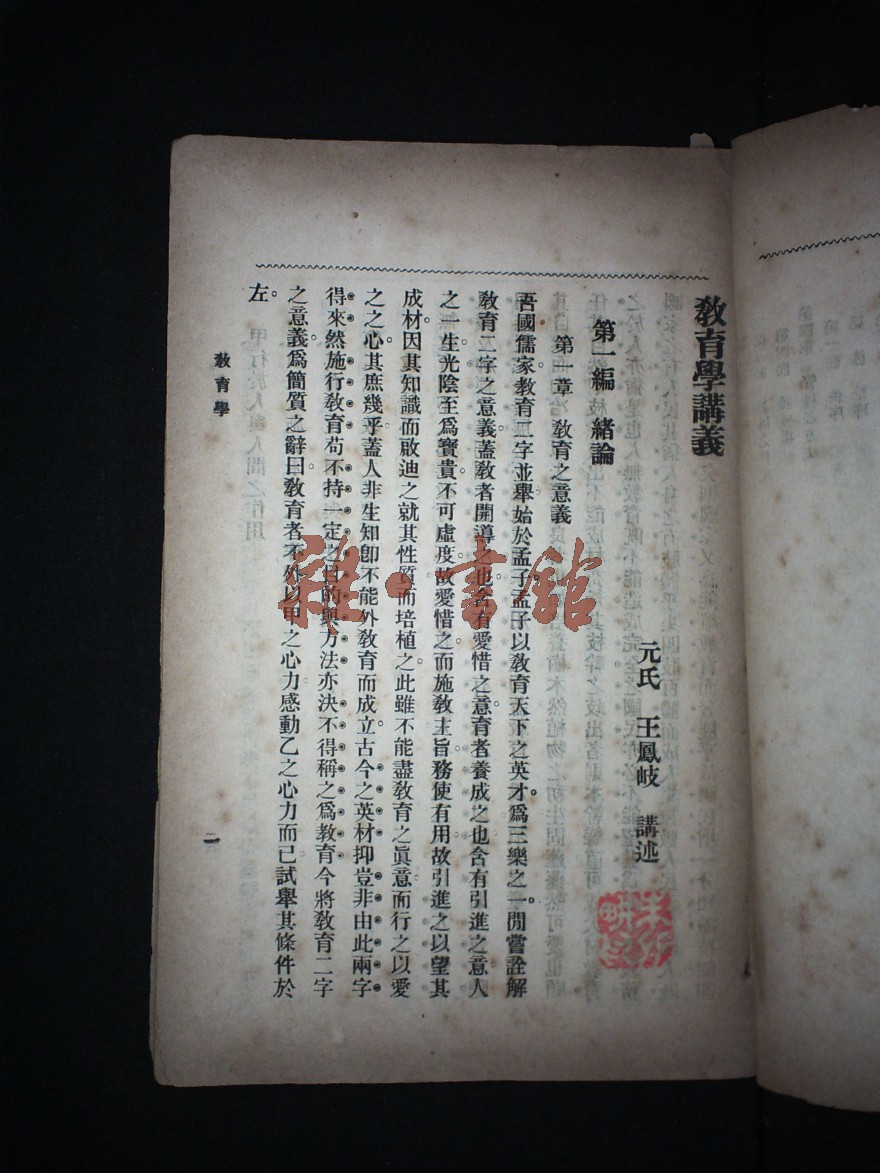 教育學講義
元氏 王鳳岐 講述
第一編 緒論
第一章 教育之意義
吾國儒家教育二字並舉始於孟子。孟子以教育天下之英才。爲三樂之一。閒嘗詮解
教育二字之意義。蓋教者開導之也。含有愛惜之意。育者養成之也含有引進之意。人
之一生光陰至爲寶貴。不可虛度。故愛惜之而施教主旨。務使有用。故引進之以望其
成材。因其知識而啟迪之。就其性質而培植之。此雖不能盡教育之眞意。而行之以愛
之之心。其庶幾乎。蓋人非生知。卽不能外教育而成立。古今之英材抑豈非由此兩字
得來。然施行教育苟不持一定之目的與方法亦決不得稱之爲教育今將教育二字
之意義。爲簡質之辭曰。教育者不外以甲之心力感動乙之心力而已。試舉其條件於
左。
教育學
一
雜·書館